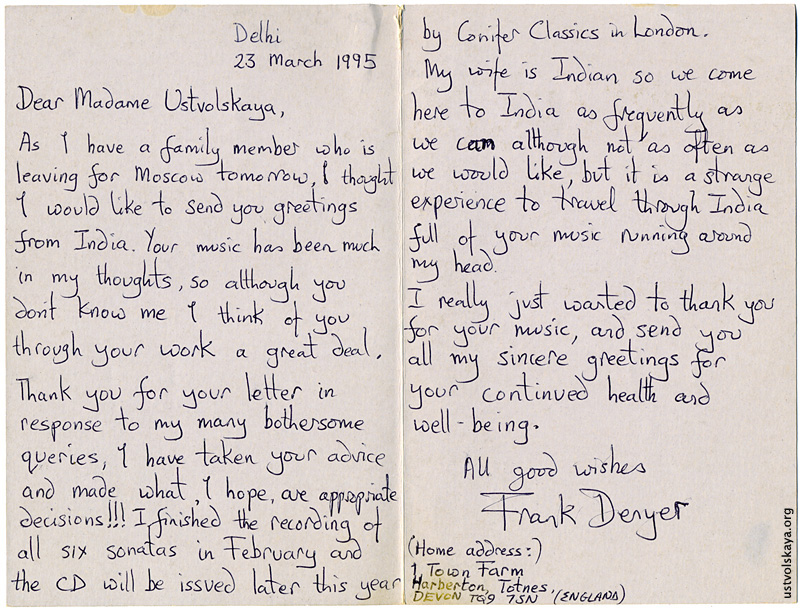 Delhi
23 March 1995
Dear Madame Ustvolskaya,
As I have a family member who is
leaving for Moscow tomorrow, I thought
I would like to send you greetings
from India. Your music has been much
in my thoughts, so although you
don't know me I think of you
through your work a great deal.
Thank you for your letter in
response to my many bothersome
queries, I have taken your advice
and made what, I hope, are appropriate
decisions!!! I finished the recording of
all six sonatas in February and
the CD will be issued later this year
by Conifer Classics in London.
My wife is Indian so we come
here to India as frequently as
we can although not as often as
we would like, but it is a strange
experience to travel through India
full of your music running around
my head.
I really just wanted to thank you
for your music, and send you
all my sincere greetings for
your continued health and
well-being.
All good wishes
Frank Denyer
(Home address:)
1, Town Farm
Harberton, Totnes,
DEVON TQ9 7SN (ENGLAND)
ustvolskaya.org